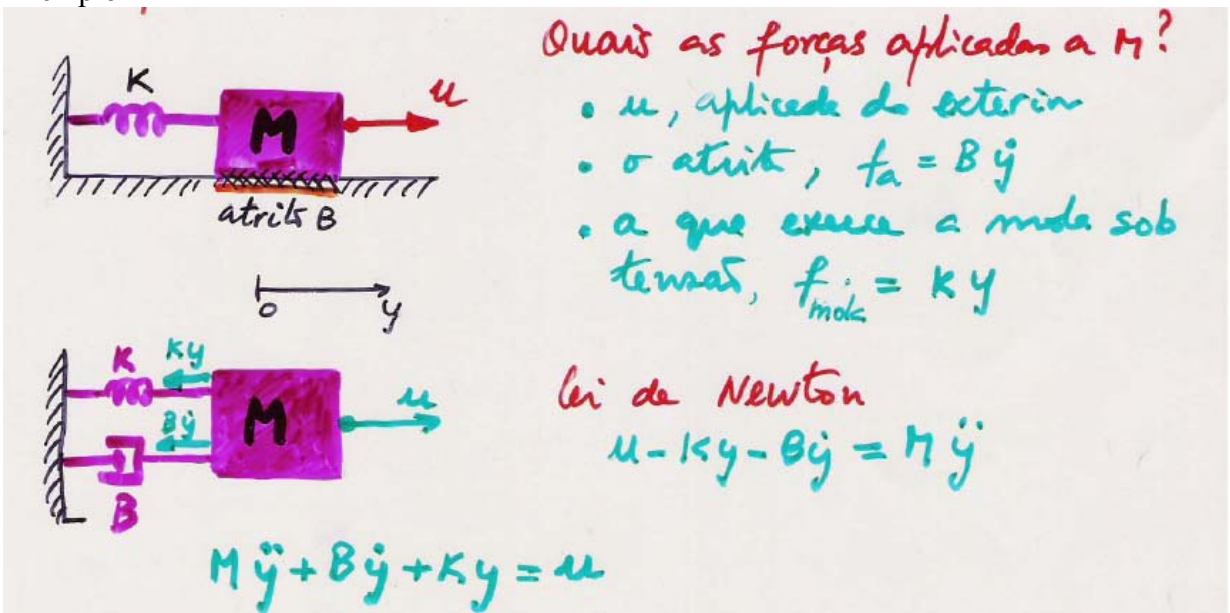 K
M
u
atrito B
0
y
K
Ky
Bẏ
M
u
B
Quais as forças aplicadas a M?
• u, aplicada do exterior
• o atrito, fa = Bẏ
• a que exerce a mola sob
tensão, f mola = Ky
lei de Newton
u - Ky - Bẏ = Mÿ
Mÿ + Bẏ + Ky = u